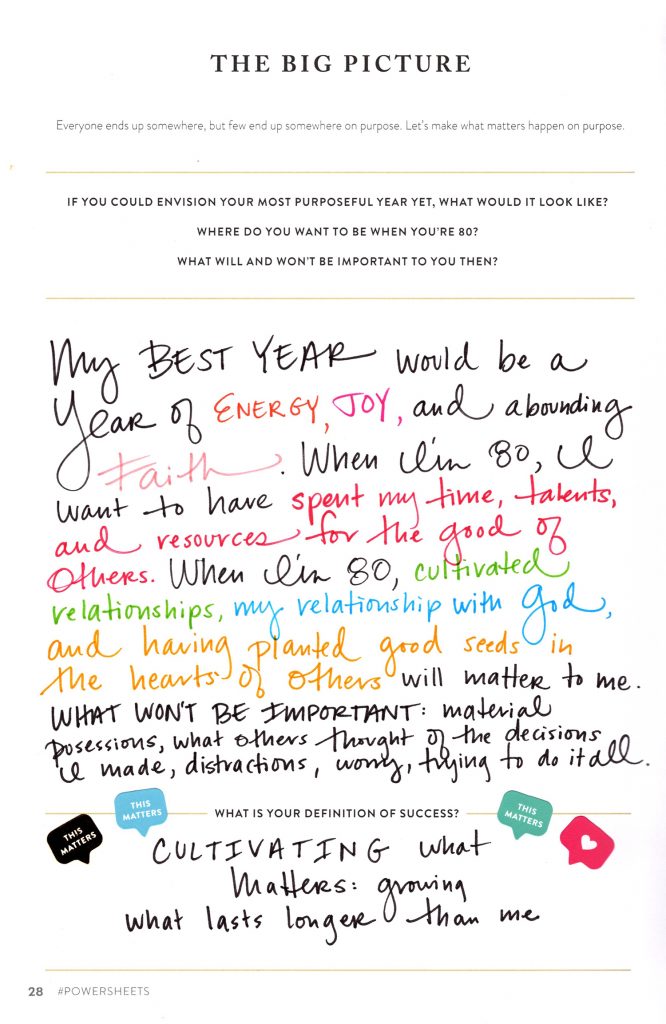 THE BIG PICTURE
Everyone ends up somewhere, but few end up somewhere on purpose. Let's make what matters happen on purpose.
IF YOU COULD ENVISION YOUR MOST PURPOSEFUL YEAR YET, WHAT WOULD IT LOOK LIKE?
WHERE DO YOU WANT TO BE WHEN YOU'RE 80?
WHAT WILL AND WON'T BE IMPORTANT TO YOU THEN?
My BEST YEAR would be a
Year of ENERGY, JOY, and abounding
Faith. When I'm 80, I
want to have spent my time, talents,
and resources for the good of
others. When I'm 80, cultivated
relationships, my relationship with God,
and having planted good seeds in
the hearts of others will matter to me.
WHAT WON'T BE IMPORTANT: material
posessions, what others thought of the decisions
I made, distractions, worry, trying to do it all.
THIS MATTERS
THIS MATTERS
WHAT IS YOUR DEFINITION OF SUCCESS?
THIS MATTERS
CULTIVATING what
Matters: growing
what lasts longer than me
28 #POWERSHEETS